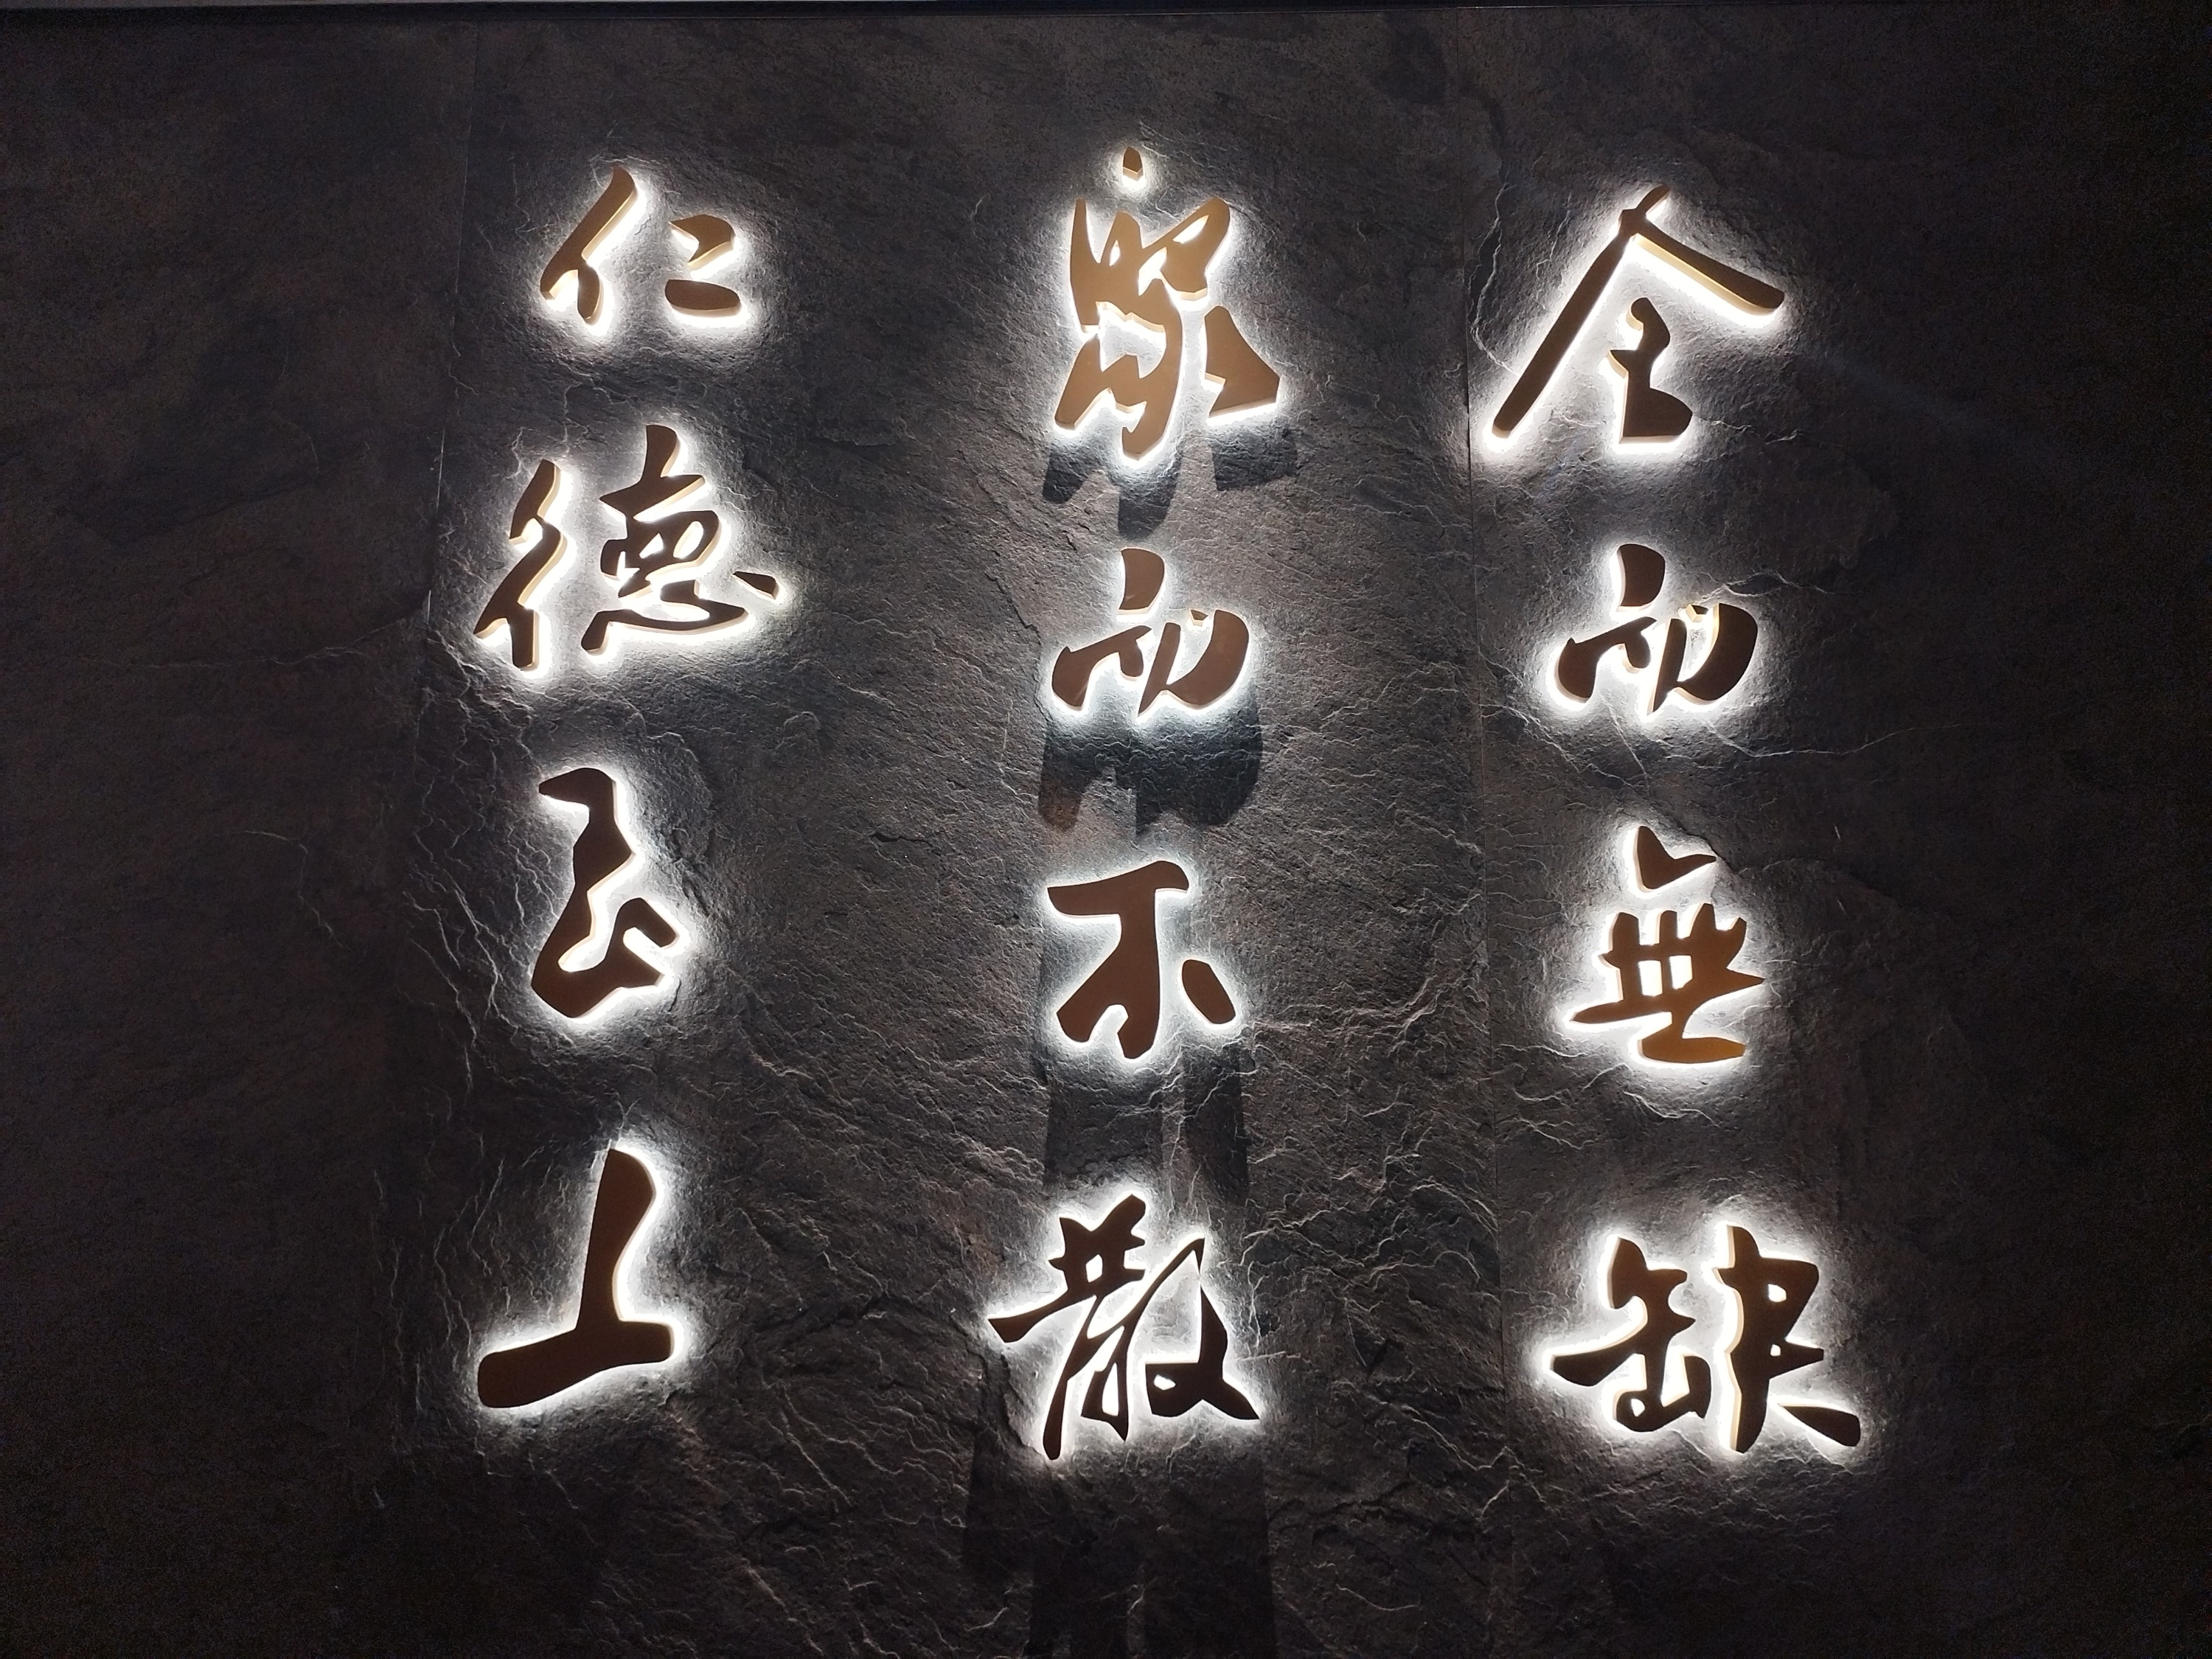 全而無缺
聚而不散
仁德至上